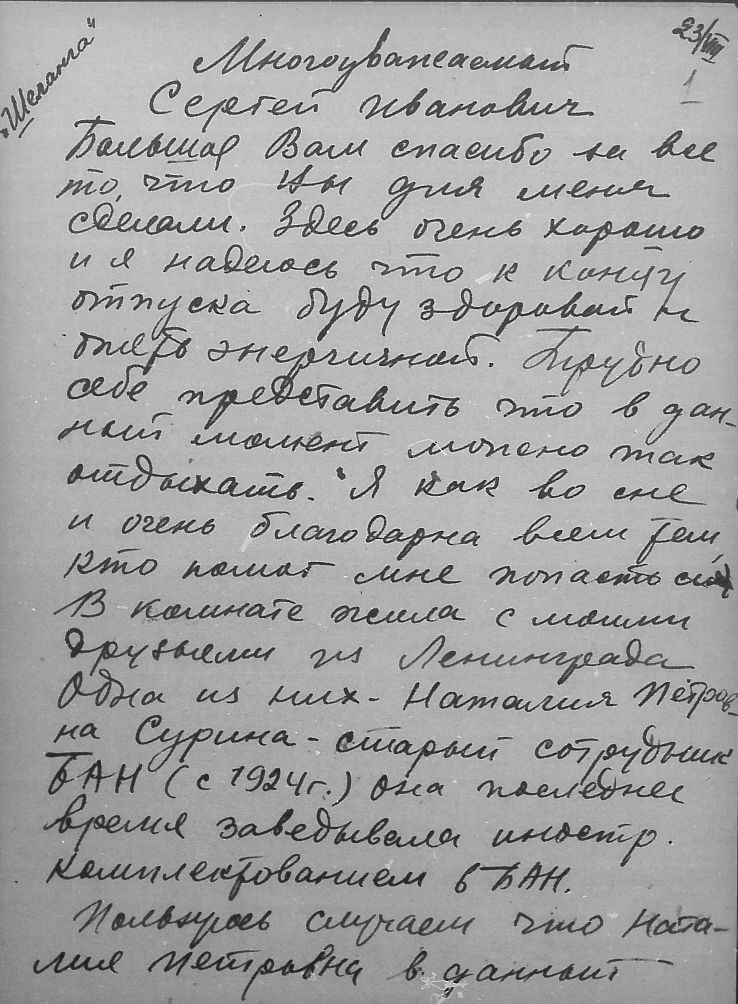 "Шеланга"
23/VIII
1
Многоуважаемый
Сергей Иванович
Большое Вам спасибо за все
то, что Вы для меня
сделали. Здесь очень хорошо
и я надеюсь что к концу
отпуска буду здоровой и
опять энергичной. Трудно
себе представить что в дан-
ный момент можно так
отдыхать. Я как во сне
и очень благодарна всем тем,
кто помог мне попасть сюда
В комнате жила с моими
друзьями из Ленинграда
Одна из них - Наталия Петров-
на Сурина - старый сотрудник
БАН (с 1924 г.) она последнее
время заведывала иностр.
комплектованием в БАН.
Пользуясь случаем что Ната-
лия Петровна в данный